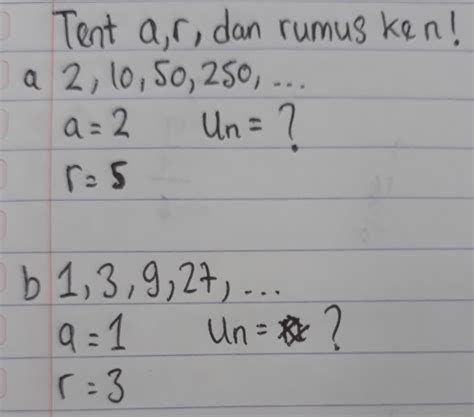 Tent a, r, dan rumus ke n!
a 2, 10, 50, 250, ...
a = 2 Un = ?
r = 5
b 1, 3, 9, 27, ...
a = 1 Un = ?
r = 3